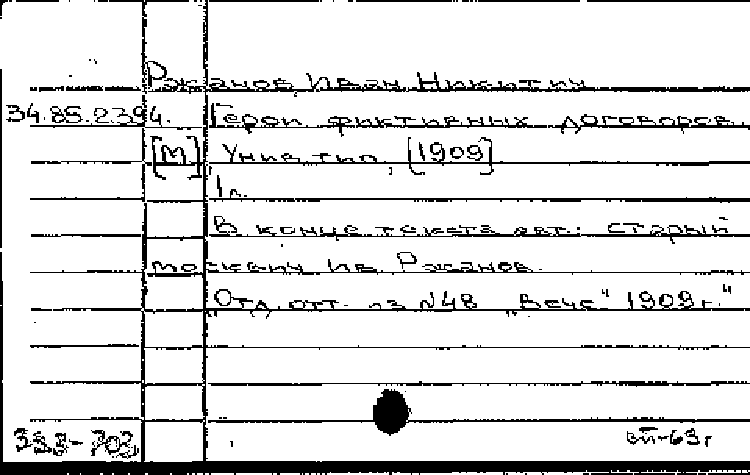 Ржанов Иван Никитич
34.85.2394. Герои фиктивных договоров.
[М], Унив. тип., [1909]
1 л.
В конце текста авт.: старый
москвич Ив. Ржанов.
"Отд. отт. из №48 „Вече“ 1909г."
333-703
вп-63г